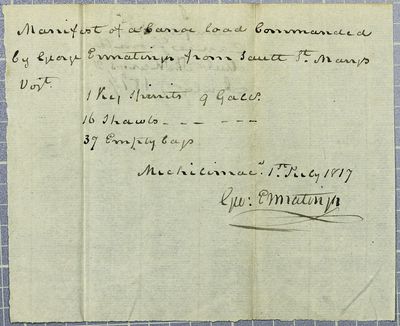 Manifest of a Canoe load Commanded
by George Ermatinger from Sault St. Marys
Vizt.
1 Keg Spirits 9 Galls.
16 Shawls - - - - - -
37 Empty bags
Michilimacc. 1st July 1817
Geo: Ermatinger